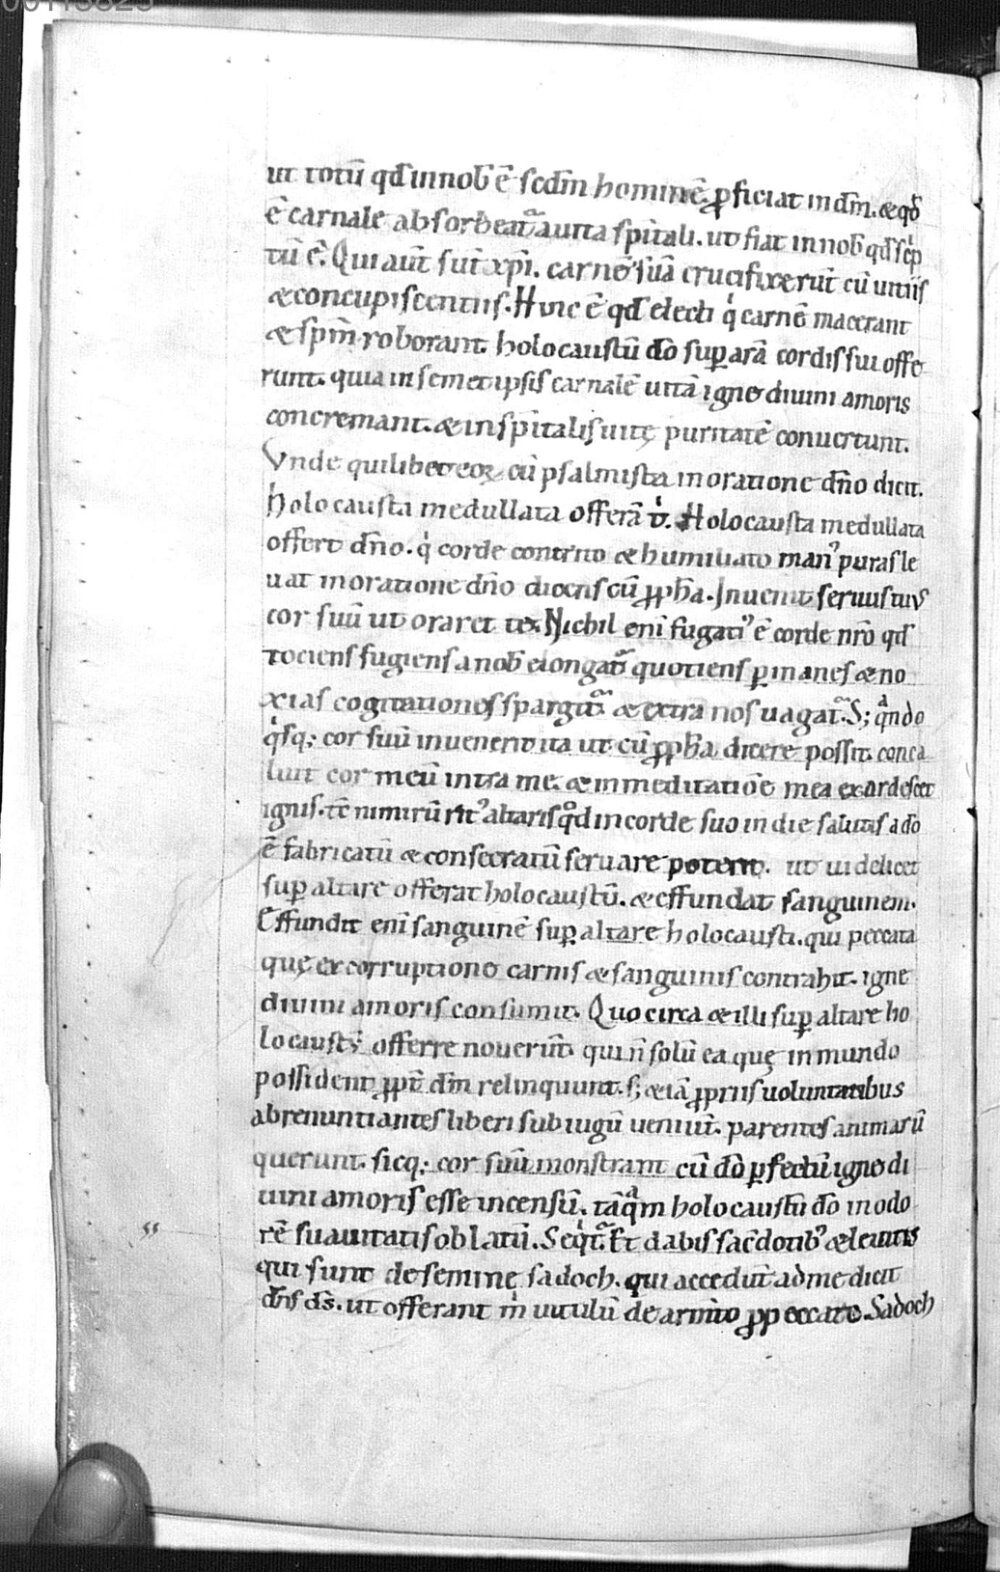 00113823
ut totū qđ in nob̄ ē scđm hominē. ꝓficiat in dm̄. & qđ
ē carnale absorbeat᷑ a uita sp̄itali. ut fiat in nob̄ qđ sc̄p
tū ē. Qui aut̄ sut̄ xp̄i. carnē suā crucifixerut̄ cū uitiis
& concupiscentiis. Hinc ē qđ electi q̇ carnē macerant
& sp̄m roborant. holocaustū dō suꝑ arā cordis sui offe
runt. quia in semetipsis carnalē uitā igne diuini amoris
concremant. & in sp̄italis uitę puritatē conuertunt.
Vnde quilibet eoꝝ cū psalmista in oratione dn̄o dicit.
Holocausta medullata offerā t̄. Holocausta medullata
offert dn̄o. q̇ corde contrito & humiliato man᷒ puras le
uat in oratione dn̄o dicens cū ꝓph̄a. Inuenit seruus tuus
cor suū ut oraret te. Nichil eni̅ fugati᷒ ē corde nr̄o qđ
tociens fugiens a nob̄ elongat᷑ quotiens ꝑ inanes & no
xias cogitationes spargit᷑ & extra nos uagat᷑. S; qͣndo
q̇sq; cor suū inuenerit ita ut cū ꝓph̄a dicere possit. conca
luit cor meū intra me. & in meditatiōe mea exardescet
ignis. tc̄ nimirū rit᷒ altaris qͦd in corde suo in die salutis a dō
ē fabricatū & consecratū seruare poterit. ut uidelicet
suꝑ altare offerat holocaustū. & effundat sanguinem.
Effundit eni̅ sanguinē suꝑ altare holocausti. qui peccata
quę ex corruptione carnis & sanguinis contrahit. igne
diuini amoris consumit. Quo circa & illi suꝑ altare ho
locaustū offerre nouerūt. qui n̄ solū ea quę in mundo
possident ꝓpt̄ dm̄ relinquunt. s; & iā ꝓpriis uoluntatibus
abrenuntiantes liberi sub iugū ueniut̄. parentes animarū
querunt. sicq; cor suū monstrant cū dō ꝑfectū igne di
uini amoris esse incensū. tāqͣm holocaustū dō in odo
rē suauitatis oblatū. Seqͥt᷑. Et dabis sac̄dotib᷒ & leuitis
qui sunt de semine sadoch. qui accedut̄ ad me dicit
dn̄s ds̄. ut offerant m̄ uitulū de armēto ꝓ peccato. Sadoch